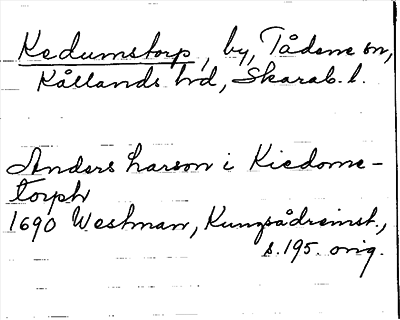 Kedumstorp, by, Tådene sn,
Kållands hd, Skarab. l.
Anders Larson i Kiedome-
torph
1690 Westman, Kungsådreinst.,
s. 195. orig.